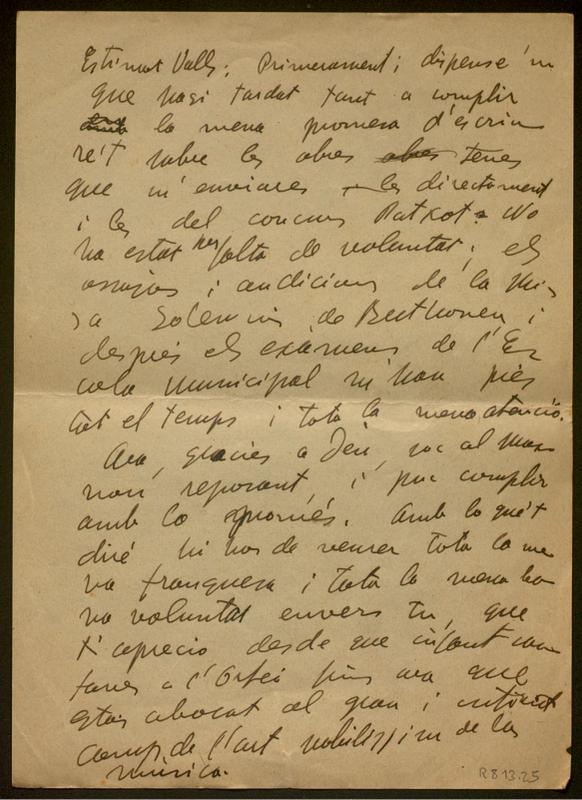 Estimat Valls: Primerament; dispense'm
que hagi tardat tant a complir
la meva promesa d'escriu
re't sobre les obres teves
que m'enviares les directament
i les del concurs Patxot. No
ha estat per falta de voluntat; els
assajos i audicions de la Mis
sa Solemnis de Beethoven i
després els exàmens de l'Es
cola Municipal m'han pres
tot el temps i tota la meva atenció.
Ara, gràcies a Deu, soc al Mas
nou reposant, i puc complir
amb lo promés. Amb lo que't
diré hi has de veurer tota la me
va franquesa i tota la meva bo
na voluntat envers tu, que
t'aprecio desde que infant can
taves a l'Orfeó fins ara que
estas abocat al gran i
camp de l'art nobilissim de la
música.
R 813.25